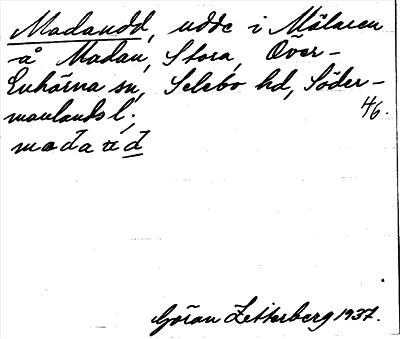 Madaudd, udde i Mälaren
å Madan, Stora, Över-
Enhörna sn, Selebo hd, Söder-
manlands l; 46.
madaŭd
Göran Zetterberg 1937.